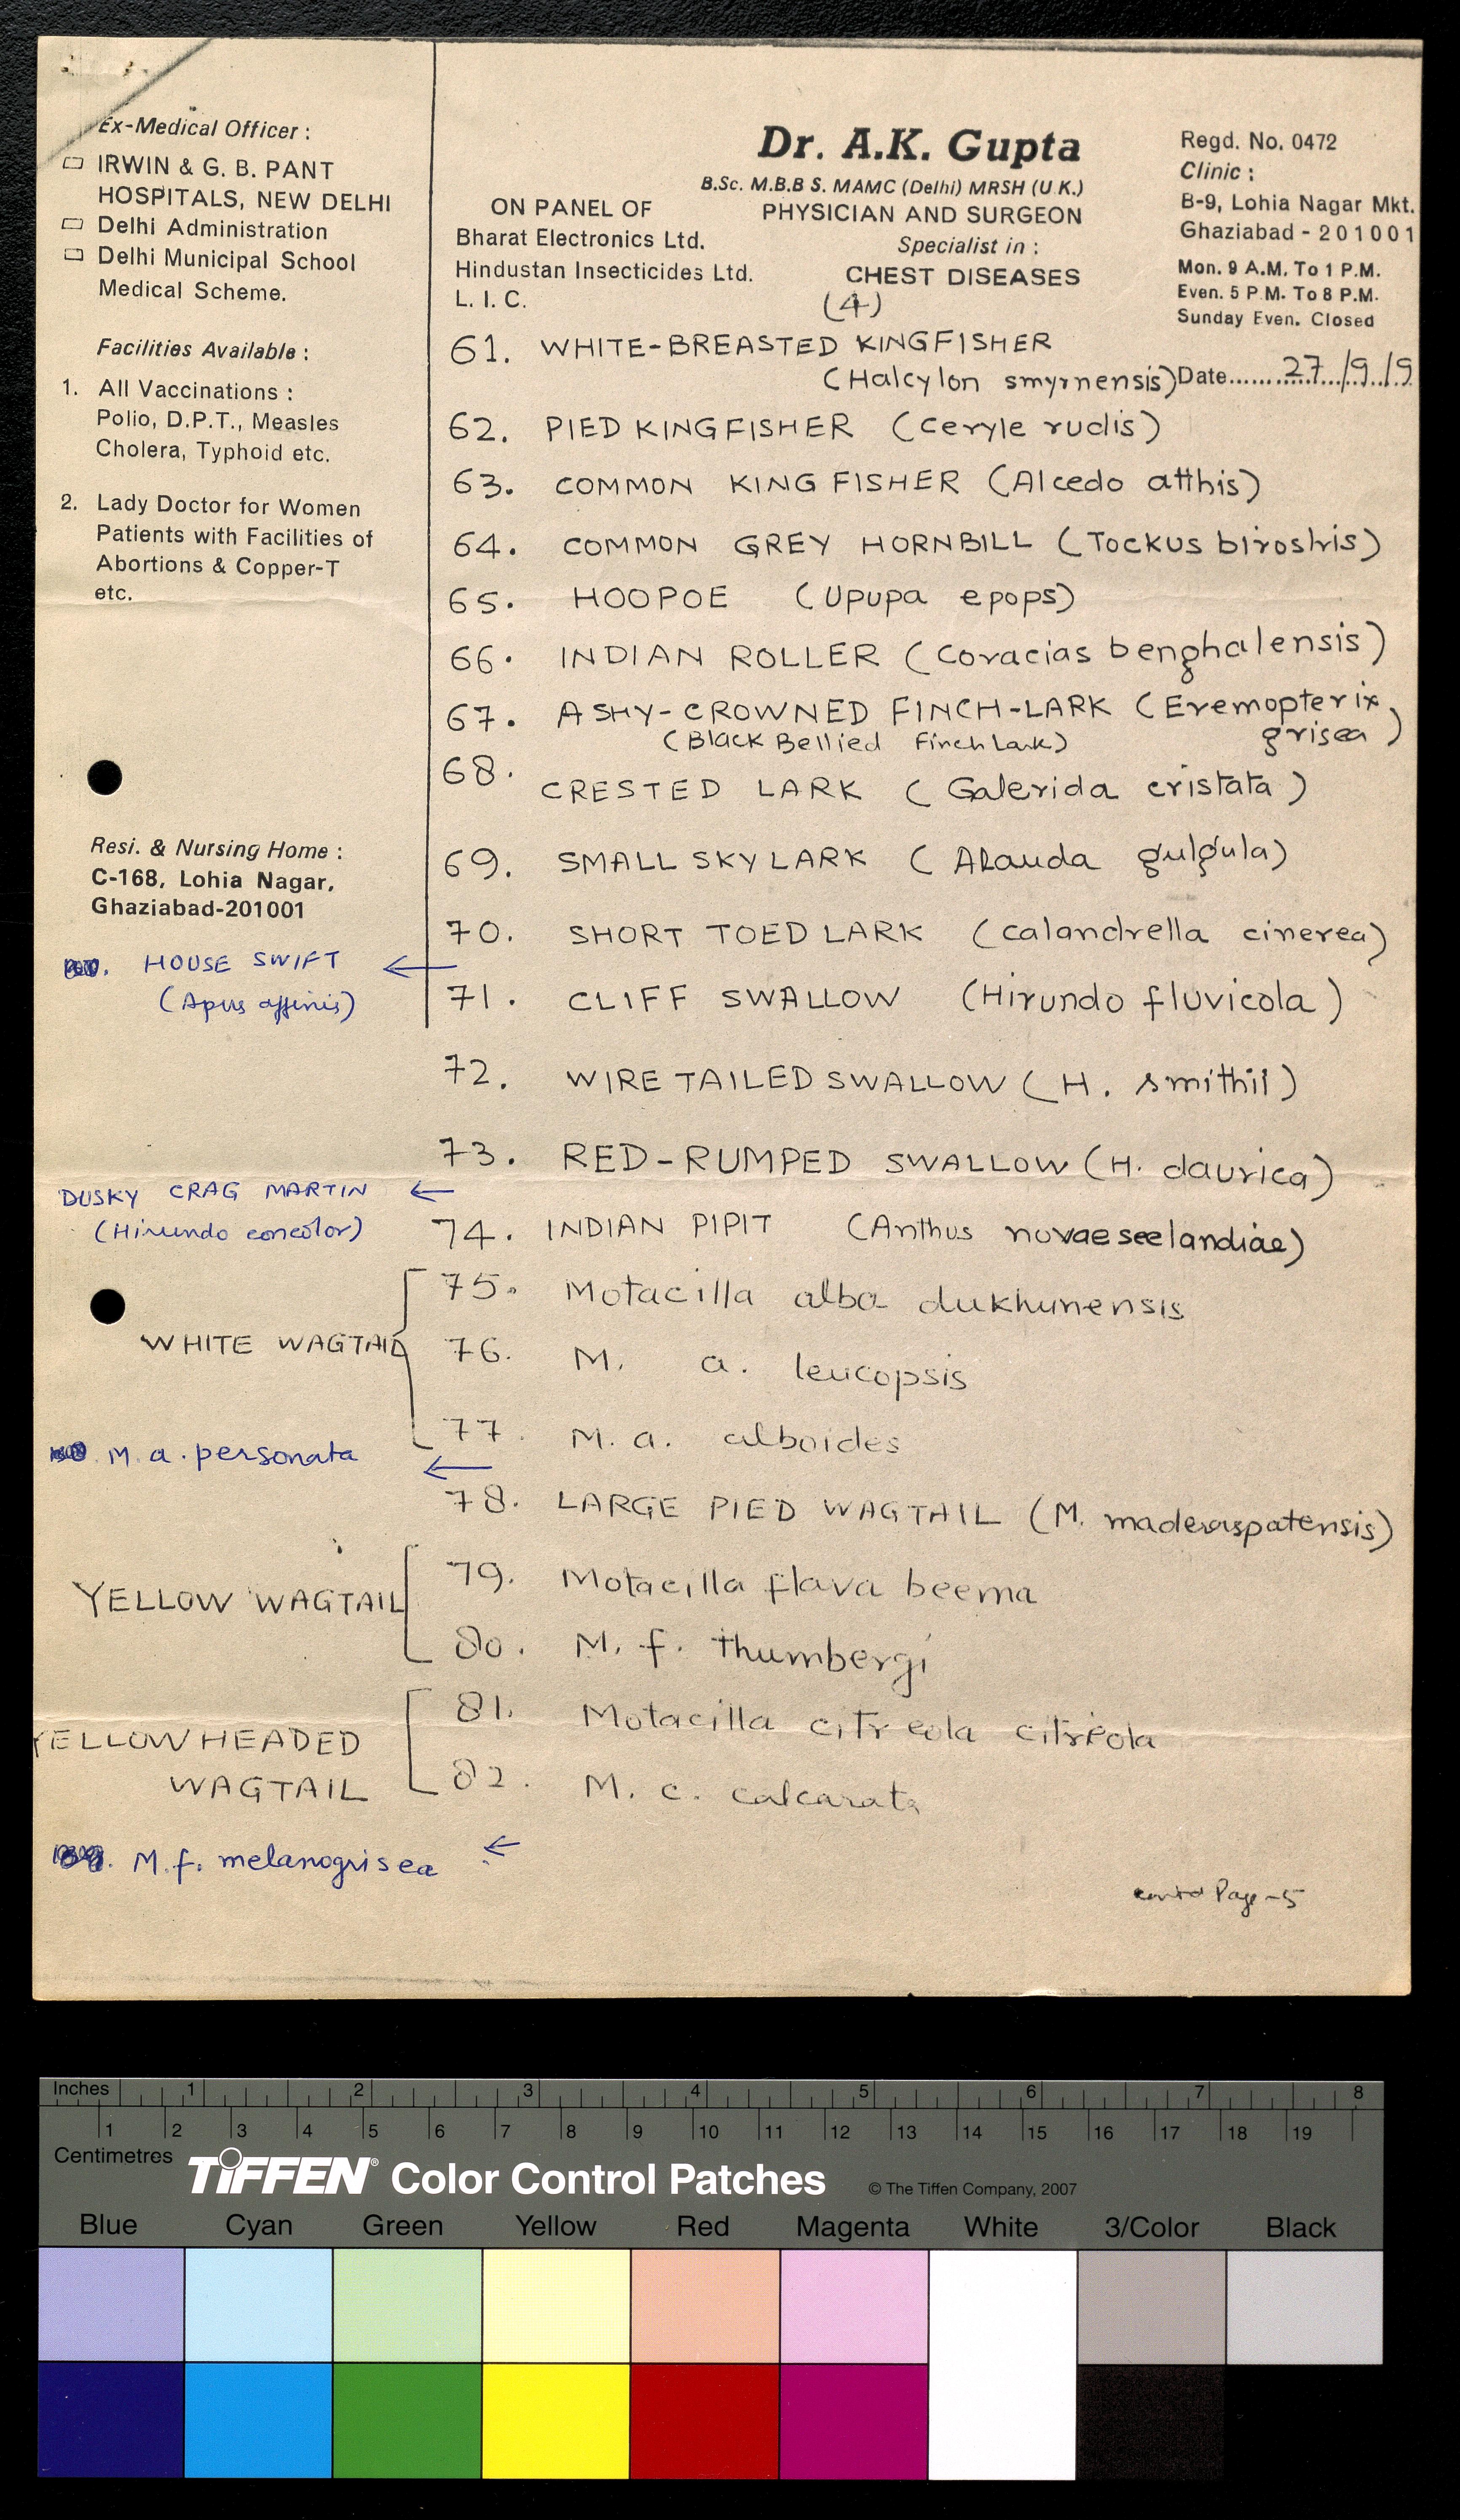 Ex-Medical Officer :
IRWIN & G. B. PANT
HOSPITALS, NEW DELHI
Delhi Administration
Delhi Municipal School
Medical Scheme.
Facilities Available :
1. All Vaccinations :
Polio, D.P.T., Measles
Cholera, Typhoid etc.
2. Lady Doctor for Women
Patients with Facilities of
Abortions & Copper-T
etc.
Resi. & Nursing Home :
C-168, Lohia Nagar,
Ghaziabad-201001
ON PANEL OF
Bharat Electronics Ltd.
Hindustan Insecticides Ltd.
L. I. C.
Dr. A.K. Gupta
B.Sc. M.B.B S. MAMC (Delhi) MRSH (U K.)
PHYSICIAN AND SURGEON
Specialist in :
CHEST DISEASES
(4)
Regd. No. 0472
Clinic :
B-9, Lohia Nagar Mkt.
Ghaziabad - 201001
Mon. 9 A.M. To 1 P.M.
Even. 5 P.M. To 8 P.M.
Sunday Even. Closed
Date 27/9/9
61. WHITE-BREASTED KINGFISHER
(Halcylon smyrnensis)
62. PIED KINGFISHER (Ceryle rudis)
63. COMMON KING FISHER (Alcedo atthis)
64. COMMON GREY HORNBILL (Tockus birostris)
65. HOOPOE (Upupa epops)
66. INDIAN ROLLER (Coracias benghalensis)
67. ASHY-CROWNED FINCH-LARK (Eremopterix
(Black Bellied Finch Lark) grisea)
68. CRESTED LARK (Galerida cristata)
69. SMALL SKY LARK (Alauda gulgula)
70. SHORT TOED LARK (calandrella cinerea)
HOUSE SWIFT ←
(Apus affinis)
71. CLIFF SWALLOW (Hirundo fluvicola)
72. WIRE TAILED SWALLOW (H. smithii)
73. RED-RUMPED SWALLOW (H. daurica)
DUSKY CRAG MARTIN ←
(Hirundo concolor)
74. INDIAN PIPIT (Anthus novaeseelandiae)
WHITE WAGTAIL
75. Motacilla alba dukhunensis
76. M. a. leucopsis
77. M. a. alboides
M. a. personata ←
78. LARGE PIED WAGTAIL (M. maderaspatensis)
YELLOW WAGTAIL
79. Motacilla flava beema
80. M. f. thumbergi
YELLOW HEADED
WAGTAIL
81. Motacilla citreola citreola
82. M. c. calcarata
M. f. melanogrisea ←
contd Page-5
Inches 1 2 3 4 5 6 7 8
1 2 3 4 5 6 7 8 9 10 11 12 13 14 15 16 17 18 19
Centimetres
TIFFEN® Color Control Patches © The Tiffen Company, 2007
Blue Cyan Green Yellow Red Magenta White 3/Color Black